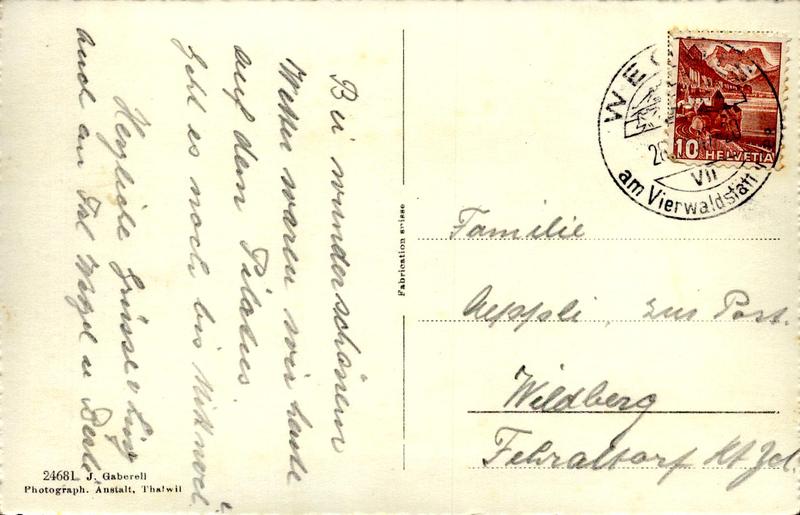 Bei wunderschönem
Wetter waren wir heute
auf dem Pilatus.
geht es noch bis
Herzliche Grüsse
auch an
WEGGIS
26. VII
am Vierwaldstättersee
10 HELVETIA
Familie
Aeppli, zur Post.
Wildberg
Fehraltorf Kt Zch.
Fabrication suisse
24681 J. Gaberell
Photograph. Anstalt, Thalwil